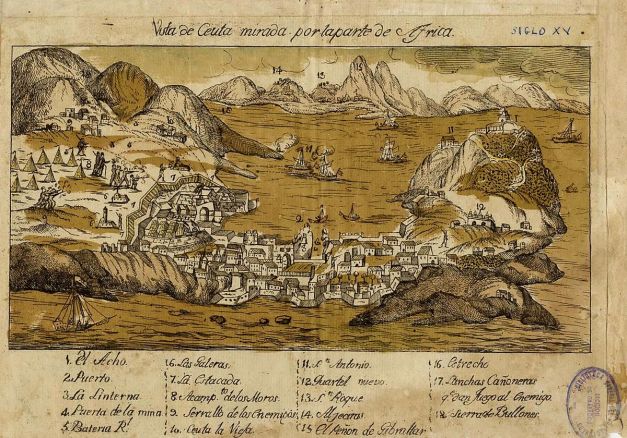 Vista de Ceuta mirada por la parte de Africa.
SIGLO XV
1. El Acho.
2. Puerto
3. La Linterna
4. Puerta de la mina
5. Bateria Rl.
6. Las Galeras.
7. La Estacada.
8. Acampto. de los Moros.
9. Serrallo de los Enemigos
10. Ceuta la Vieja
11. Sn. Antonio.
12. Quartel nuevo.
13. Sn. Roque
14. Algeciras
15. El Peñon de Gibraltar
16. Estrecho
17. Lanchas Cañoneras
q. dan fuego al Enemigo.
18. Sierra de Bullones.